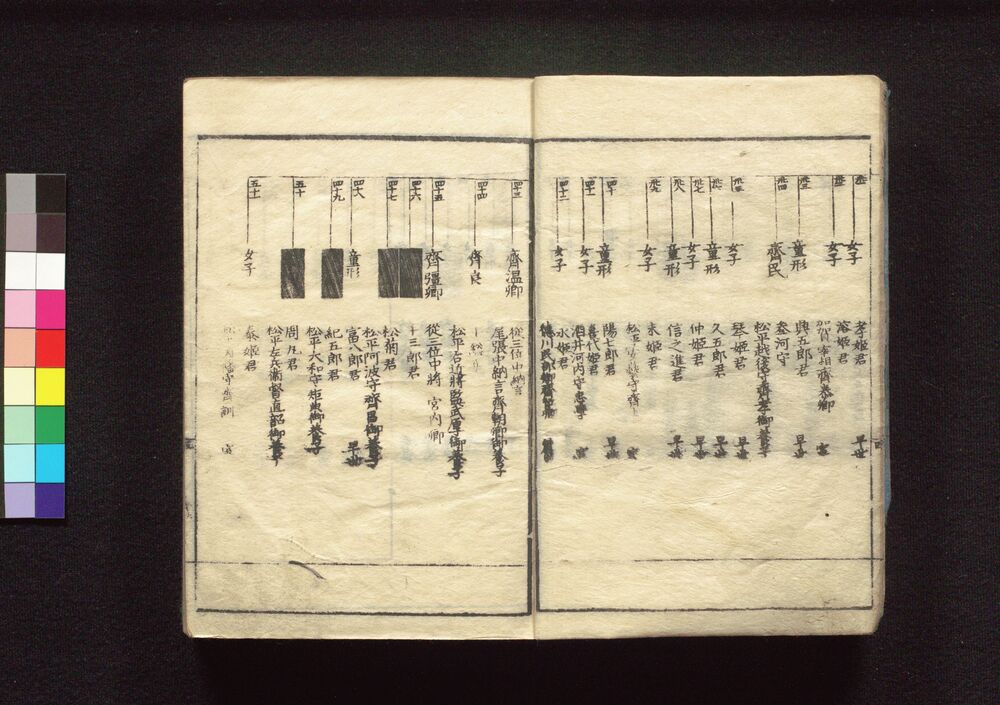 女子
孝姫君
早世
女子
溶姫君
加賀宰相齊泰卿 室
童形
興五郎君
早世
齊民
参河守
松平越後守齊孝御養子
女子
琴姫君
早世
童形
久五郎君
早世
女子
仲姫君
早世
童形
信之進君
早世
女子
末姫君
室
四十
童形
陽七郎君
早世
四十一
女子
喜代姫君
酒井河内守忠學 室
四十二
女子
永姫君
四十三
齊温卿
從三位中納言
尾張中納言齊朝卿御養子
四十四
齊良
松平右近將監武厚御養子
四十五
齊彊卿
從三位中將 宮内卿
四十六
十三郎君
四十七
松菊君
松平阿波守齊昌御養子
四十八
童形
富八郎君
早世
四十九
紀五郎君
松平大和守矩典御養子
五十
周丸君
松平左兵衛督直韶御養子
五十一
女子
泰姫君